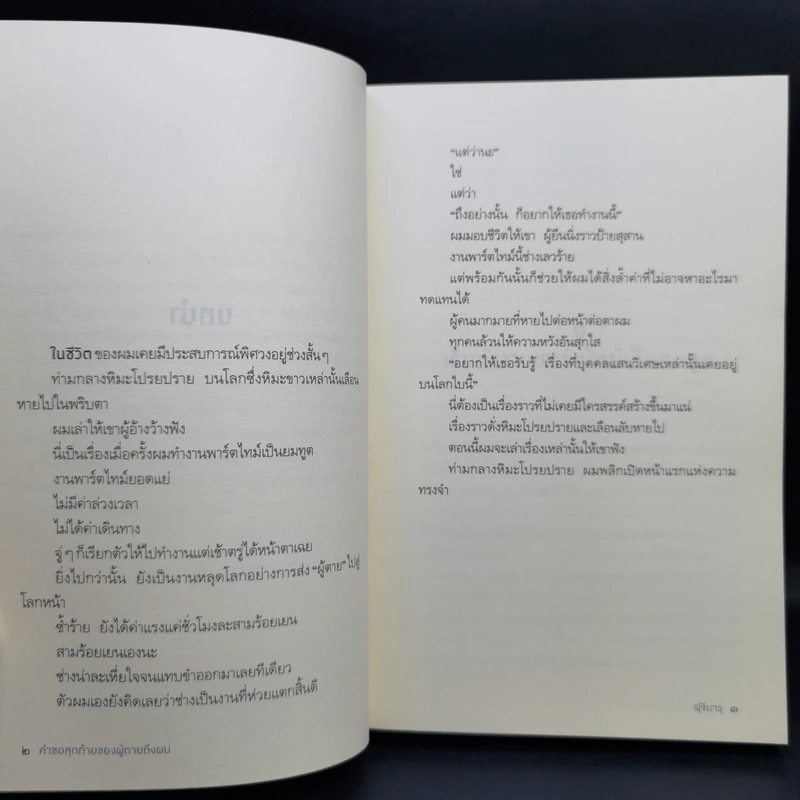 ในชีวิตของผมเคยมีประสบการณ์พิศวงอยู่ช่วงสั้นๆ
ท่ามกลางหิมะโปรยปราย บนโลกซึ่งหิมะขาวเหล่านั้นเลือน
หายไปในพริบตา
ผมเล่าให้เขาผู้อ้างว้างฟัง
นี่เป็นเรื่องเมื่อครั้งผมทำงานพาร์ตไทม์เป็นยมทูต
งานพาร์ตไทม์ยอดแย่
ไม่มีค่าล่วงเวลา
ไม่ได้ค่าเดินทาง
จู่ๆ ก็เรียกตัวให้ไปทำงานแต่เช้าตรู่ได้หน้าตาเฉย
ยิ่งไปกว่านั้น ยังเป็นงานหลุดโลกอย่างการส่ง "ผู้ตาย" ไปสู่
โลกหน้า
ซ้ำร้าย ยังได้ค่าแรงแค่ชั่วโมงละสามร้อยเยน
สามร้อยเยนเองนะ
ช่างน่าละเหี่ยใจจนแทบขำออกมาเลยทีเดียว
ตัวผมเองยังคิดเลยว่าช่างเป็นงานที่ห่วยแตกสิ้นดี
๒ คำขอสุดท้ายของผู้ตายถึงผม
"แต่ว่านะ"
ใช่
แต่ว่า
"ถึงอย่างนั้น ก็อยากให้เธอทำงานนี้"
ผมมอบชีวิตให้เขา ผู้ยืนนิ่งราวป้ายสุสาน
งานพาร์ตไทม์นี้ช่างเลวร้าย
แต่พร้อมกันนั้นก็ช่วยให้ผมได้สิ่งล้ำค่าที่ไม่อาจหาอะไรมา
ทดแทนได้
ผู้คนมากมายที่หายไปต่อหน้าต่อตาผม
ทุกคนล้วนให้ความหวังอันสุกใส
"อยากให้เธอรับรู้ เรื่องที่บุคคลแสนวิเศษเหล่านั้นเคยอยู่
บนโลกใบนี้"
นี่ต้องเป็นเรื่องราวที่ไม่เคยมีใครสรรค์สร้างขึ้นมาแน่
เรื่องราวดั่งหิมะโปรยปรายและเลือนลับหายไป
ตอนนี้ผมจะเล่าเรื่องเหล่านั้นให้เขาฟัง
ท่ามกลางหิมะโปรยปราย ผมพลิกเปิดหน้าแรกแห่งความ
ทรงจำ
ฟุจิมารุ ๓